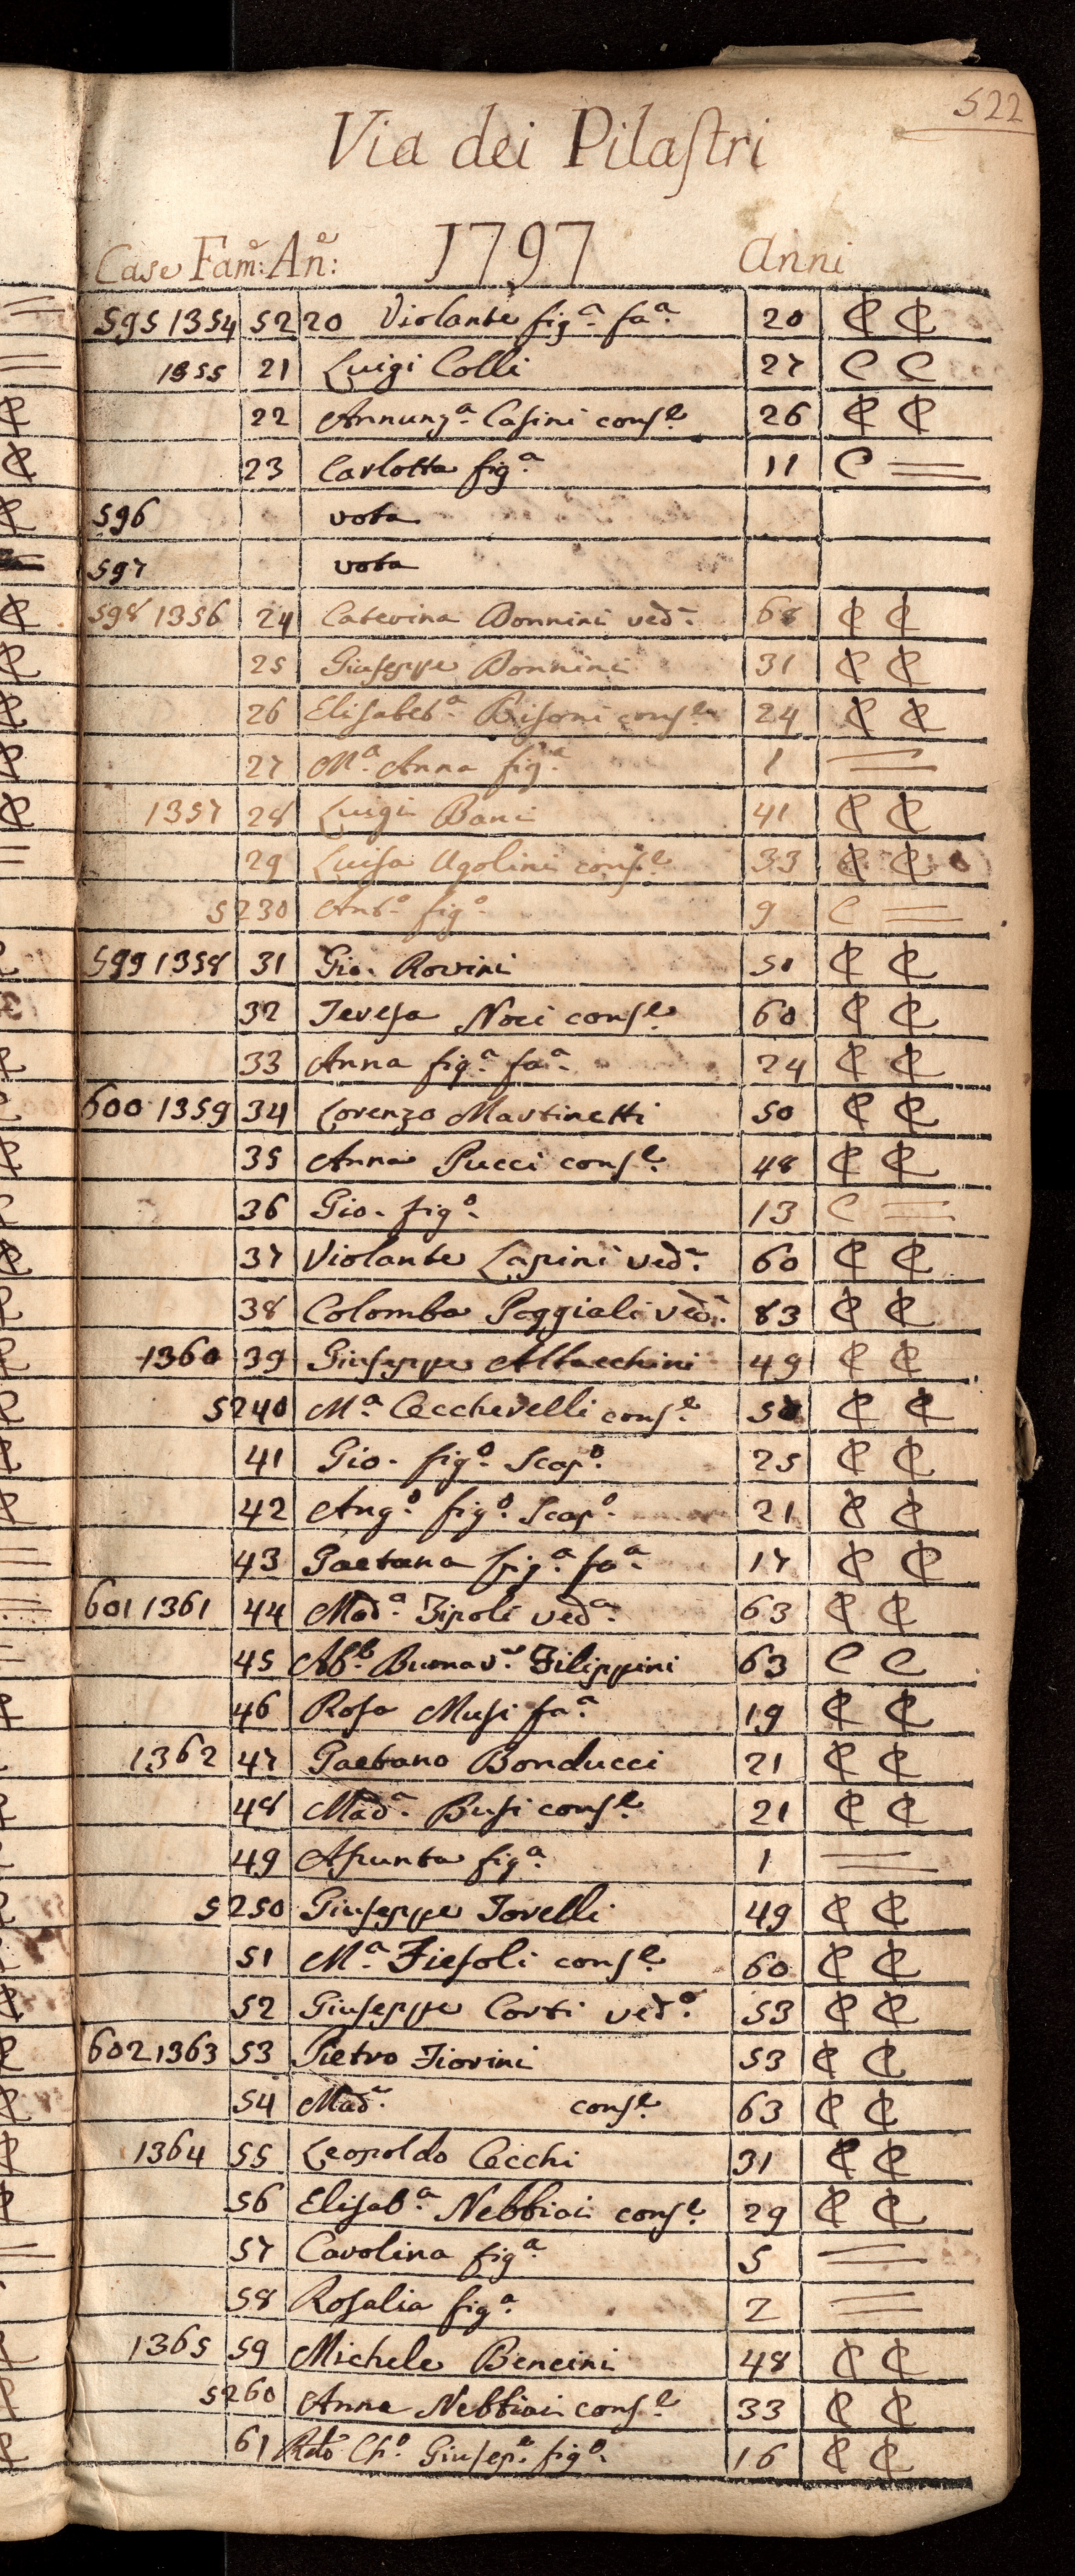 522
Via dei Pilaſtri
Case Fam: An: 1797 Anni
595 1354 5220 Violante fig.ª fa.ª 20 ₵ ₵
1355 21 Luigi Colli 27 C C
22 Annunz.ª Caſini conſ.e 26 ₵ ₵
23 Carlotta fig.ª 11 C =
596 vota
597 vota
598 1356 24 Caterina Donnini ved.ª 68 ₵ ₵
25 Giuſeppe Donnini 31 ₵ ₵
26 Eliſabet.ª Biſorni conſ.e 24 ₵ ₵
27 M.ª Anna fig.ª 1 =
1357 28 Luigi Bani 41 ₵ ₵
29 Luiſa Ugolini conſ.e 33 ₵ ₵
5230 Ant.º fig.º 9 C =
599 1358 31 Gio. Rovini 51 ₵ ₵
32 Tereſa Noci conſ.e 60 ₵ ₵
33 Anna fig.ª fa.ª 24 ₵ ₵
600 1359 34 Lorenzo Martinetti 50 ₵ ₵
35 Anna Pucci conſ.e 48 ₵ ₵
36 Gio. fig.º 13 C =
37 Violante Lapini ved.ª 60 ₵ ₵
38 Colomba Poggiali ved.ª 83 ₵ ₵
1360 39 Giuſeppe Albacchini 49 ₵ ₵
5240 M.ª Ceccherelli conſ.e 50 ₵ ₵
41 Gio. fig.º Scap.º 25 ₵ ₵
42 Ang.º fig.º Scap.º 21 ₵ ₵
43 Gaetana fig.ª fa.ª 17 ₵ ₵
601 1361 44 Mad.ª Zipoli ved.ª 63 ₵ ₵
45 Ab.b Buonav.ª Filippini 63 C C
46 Roſa Muſi fa.ª 19 ₵ ₵
1362 47 Gaetano Bonducci 21 ₵ ₵
48 Mad.ª Buſi conſ.e 21 ₵ ₵
49 Aſunta fig.ª 1 =
5250 Giuſeppe Torelli 49 ₵ ₵
51 M.ª Fieſoli conſ.e 60 ₵ ₵
52 Giuſeppe Corti ved.º 53 ₵ ₵
602 1363 53 Pietro Fiorini 53 ₵ ₵
54 Mad.ª conſ.e 63 ₵ ₵
1364 55 Leopoldo Cecchi 31 ₵ ₵
56 Eliſab.ª Nebbiai conſ.e 29 ₵ ₵
57 Carolina fig.ª 5 =
58 Roſalia fig.ª 2 =
1365 59 Michele Bencini 48 ₵ ₵
5260 Anna Nebbiai conſ.e 33 ₵ ₵
61 Rdo Ch.º Giuſep.e fig.º 16 ₵ ₵